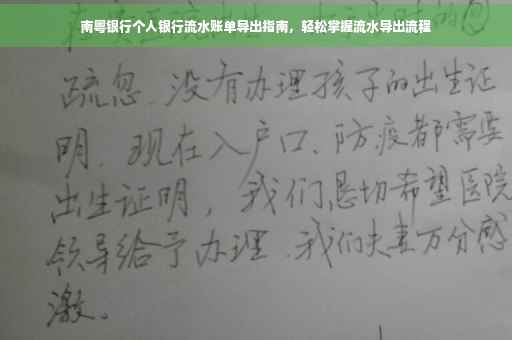 南粤银行个人银行流水账单导出指南，轻松掌握流水导出流程
疏忽、没有办理孩子的出生证
明、现在入户口、防疫都需要
出生证明，我们恳切希望医院
领导给予办理、我们夫妻万分感
激。